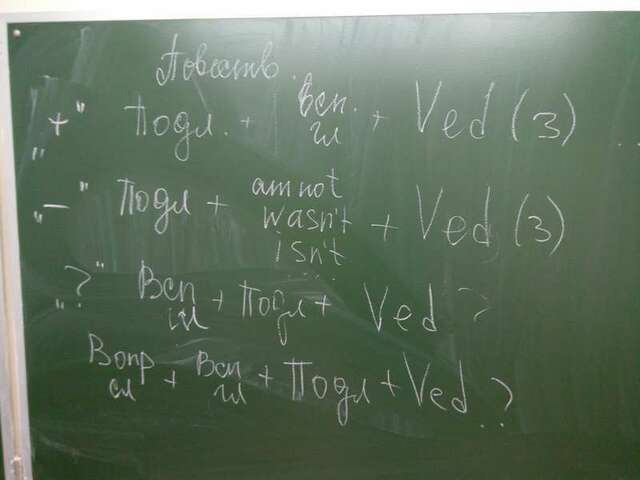 Повеств.
"+" Подл. + всп. гл + Ved (3)
"–" Подл + am not wasn't isn't + Ved (3)
"?" Всп гл + Подл + Ved ?
Вопр сл + Всп гл + Подл + Ved ?